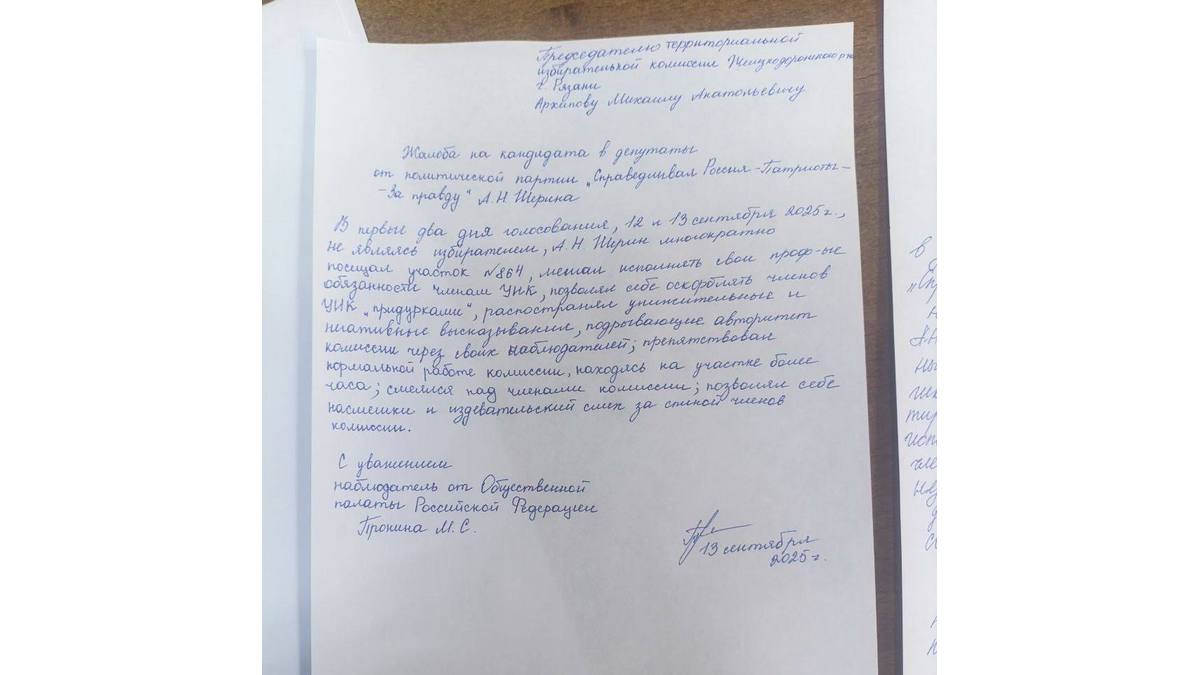 Председателю территориальной
избирательной комиссии Железнодорожного р-на
г. Рязани
Архипову Михаилу Анатольевичу
Жалоба на кандидата в депутаты
от политической партии „Справедливая Россия-Патриоты-
-За правду" А.Н. Шерина
В первые два дня голосования, 12 и 13 сентября 2025 г.,
не являясь избирателем, А.Н. Шерин многократно
посещал участок №864, мешал исполнять свои проф-ые
обязанности членам УИК, позволял себе оскорблять членов
УИК „придурками", распостранял унизительные и
негативные высказывания, подрывающие авторитет
комиссии через своих наблюдателей; препятствовал
нормальной работе комиссии, находясь на участке более
часа; смеялся над членами комиссии; позволял себе
насмешки и издевательский смех за спиной членов
комиссии.
С уважением
наблюдатель от Общественной
палаты Российской Федерации
Пронина М.С.
13 сентября
2025 г.